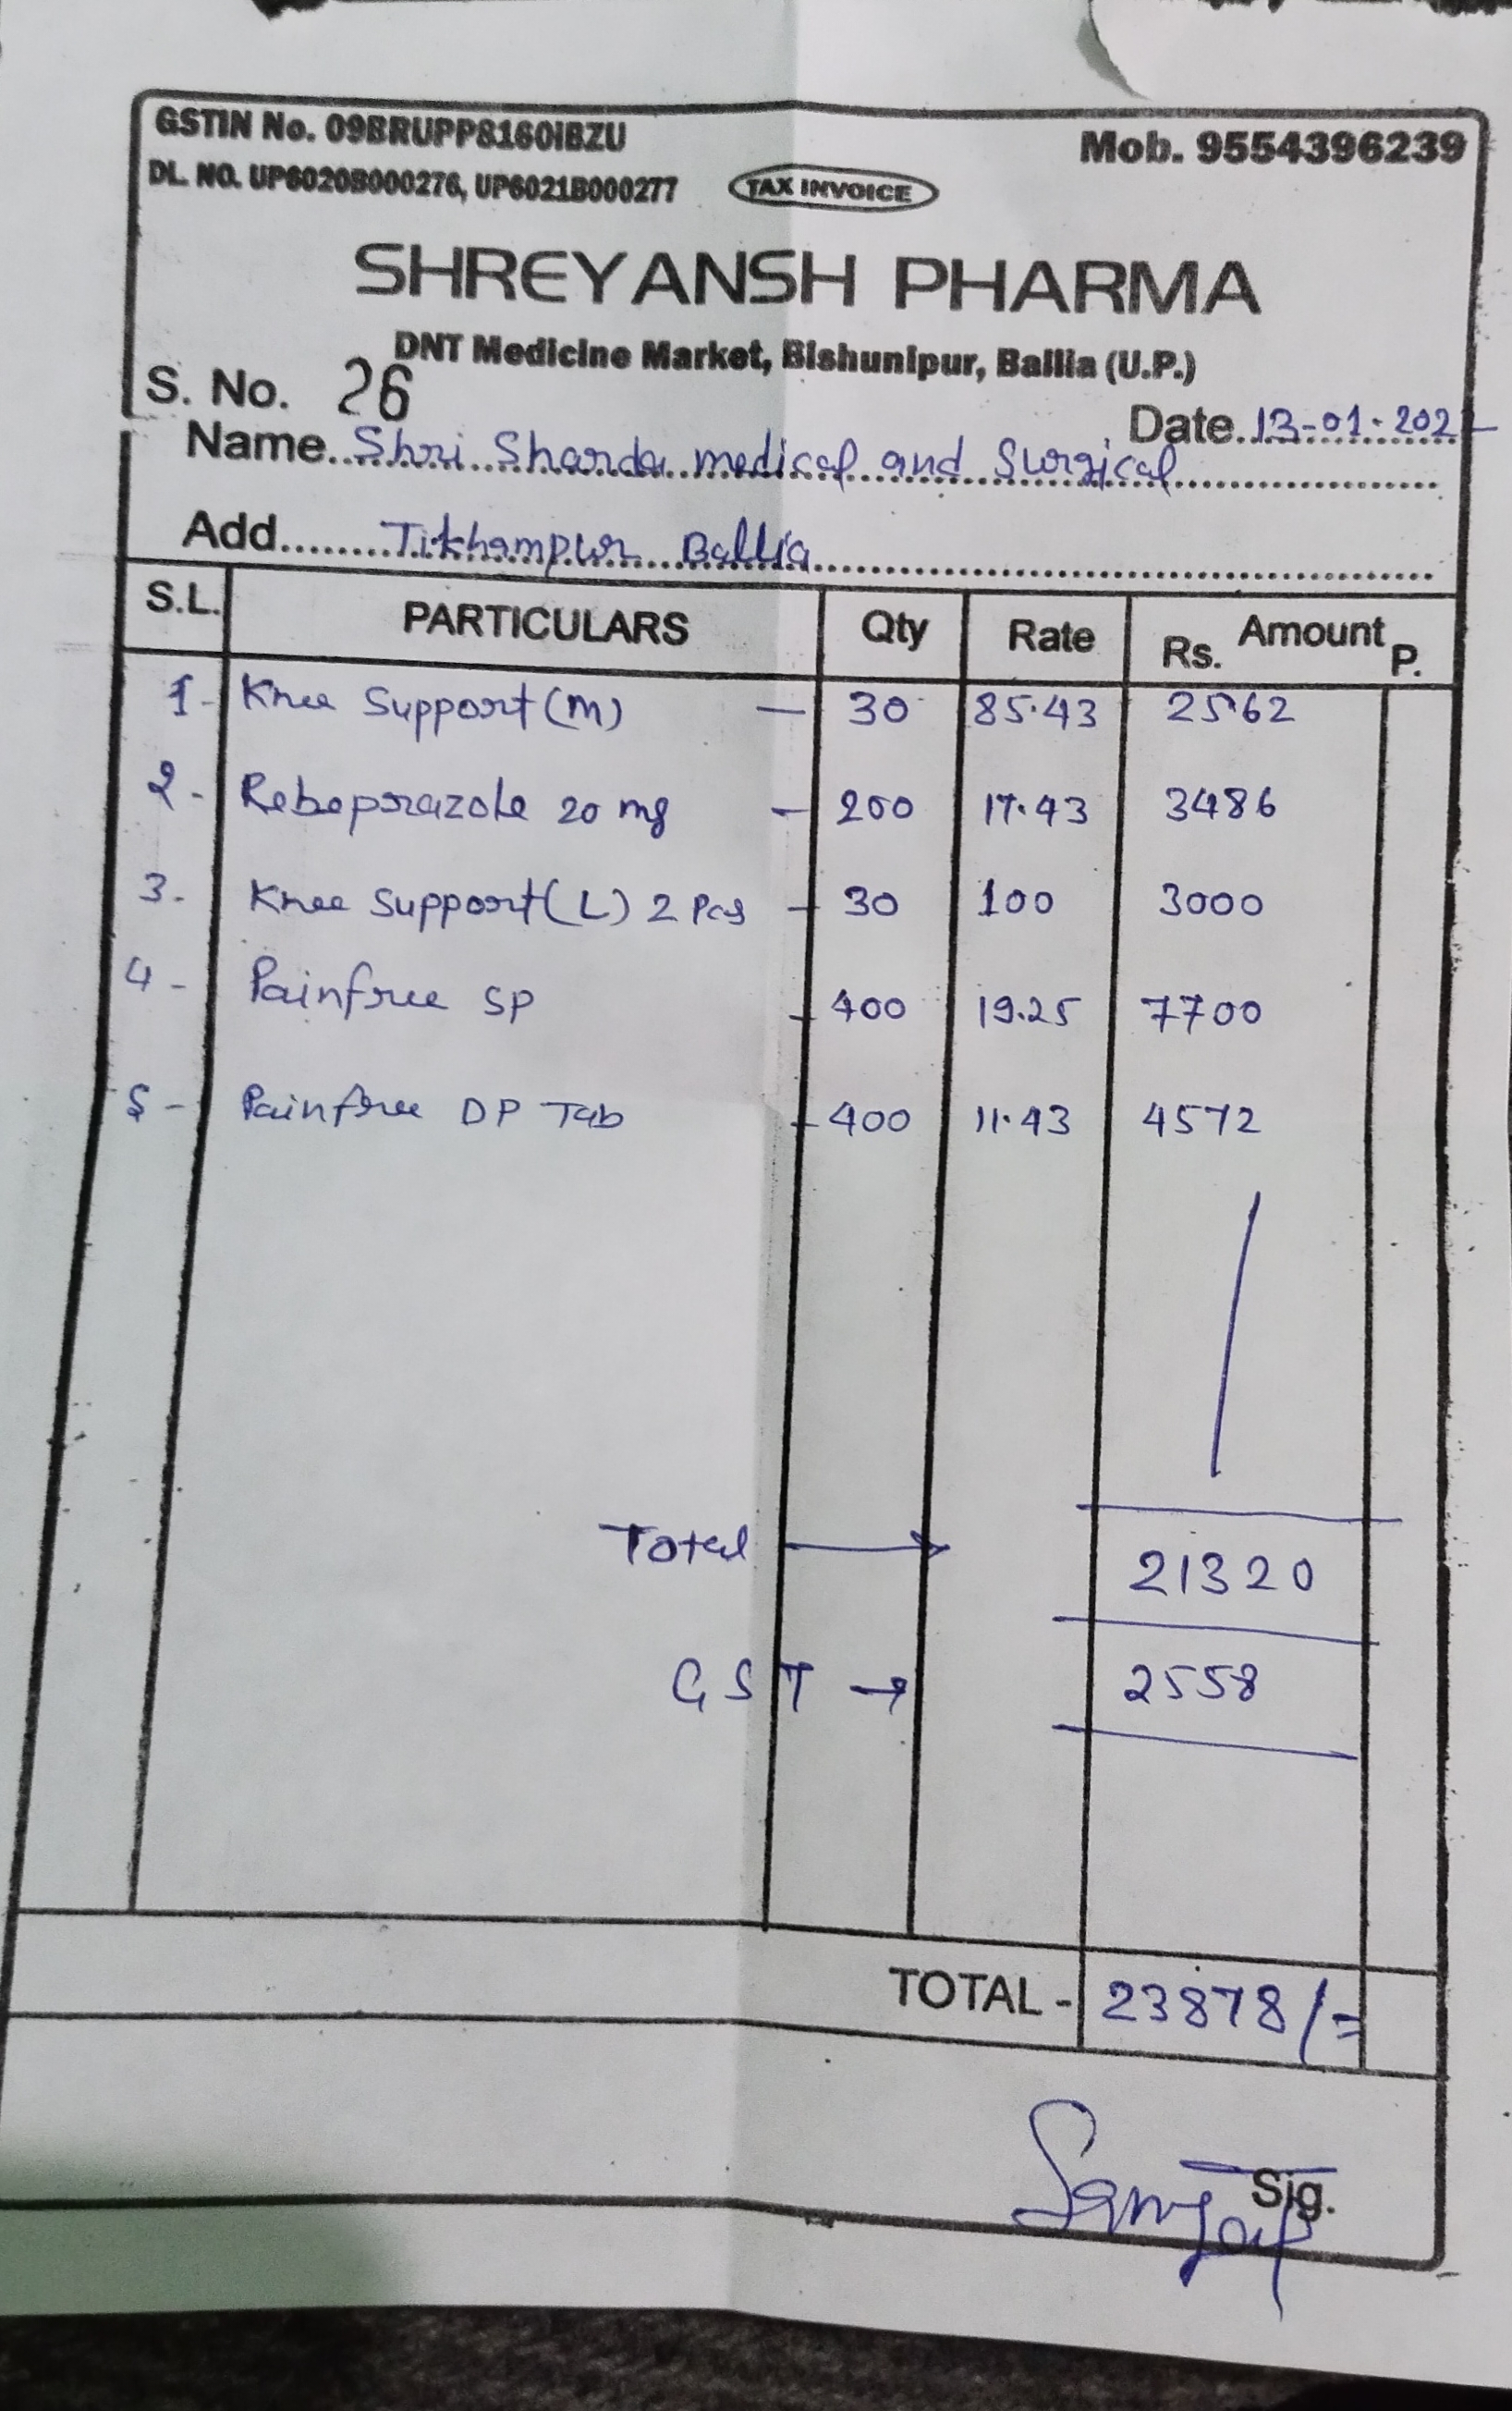 GSTIN No. 09BRUPP8160IBZU
Mob. 9554396239
DL. NO. UP6020B000276, UP6021B000277
TAX INVOICE
SHREYANSH PHARMA
DNT Medicine Market, Bishunipur, Ballia (U.P.)
S. No. 26
Date. 13-01-202
Name. Shri Sharda medical and Surgical
Add. Tikhampur Ballia
S.L. PARTICULARS Qty Rate Amount Rs. P.
1- Knee Support (M) — 30 85.43 2562
2- Rebeprazole 20 mg - 200 17.43 3486
3- Knee Support (L) 2 Pcs - 30 100 3000
4- Painfree SP - 400 19.25 7700
5- Painfree DP Tab - 400 11.43 4572
Total → 21320
GST → 2558
TOTAL - 23878/=
Sanjay
Sig.